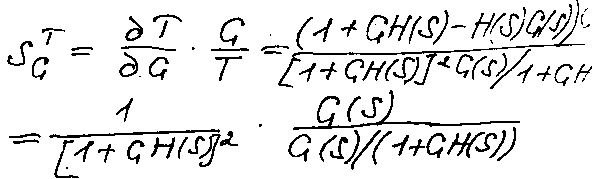 S_G^T = ∂T/∂G · G/T = (1+GH(S)-H(S)G(S))( / [1+GH(S)]²G(S)/1+GH
= 1/[1+GH(S)]² · G(S)/G(S)/(1+GH(S))